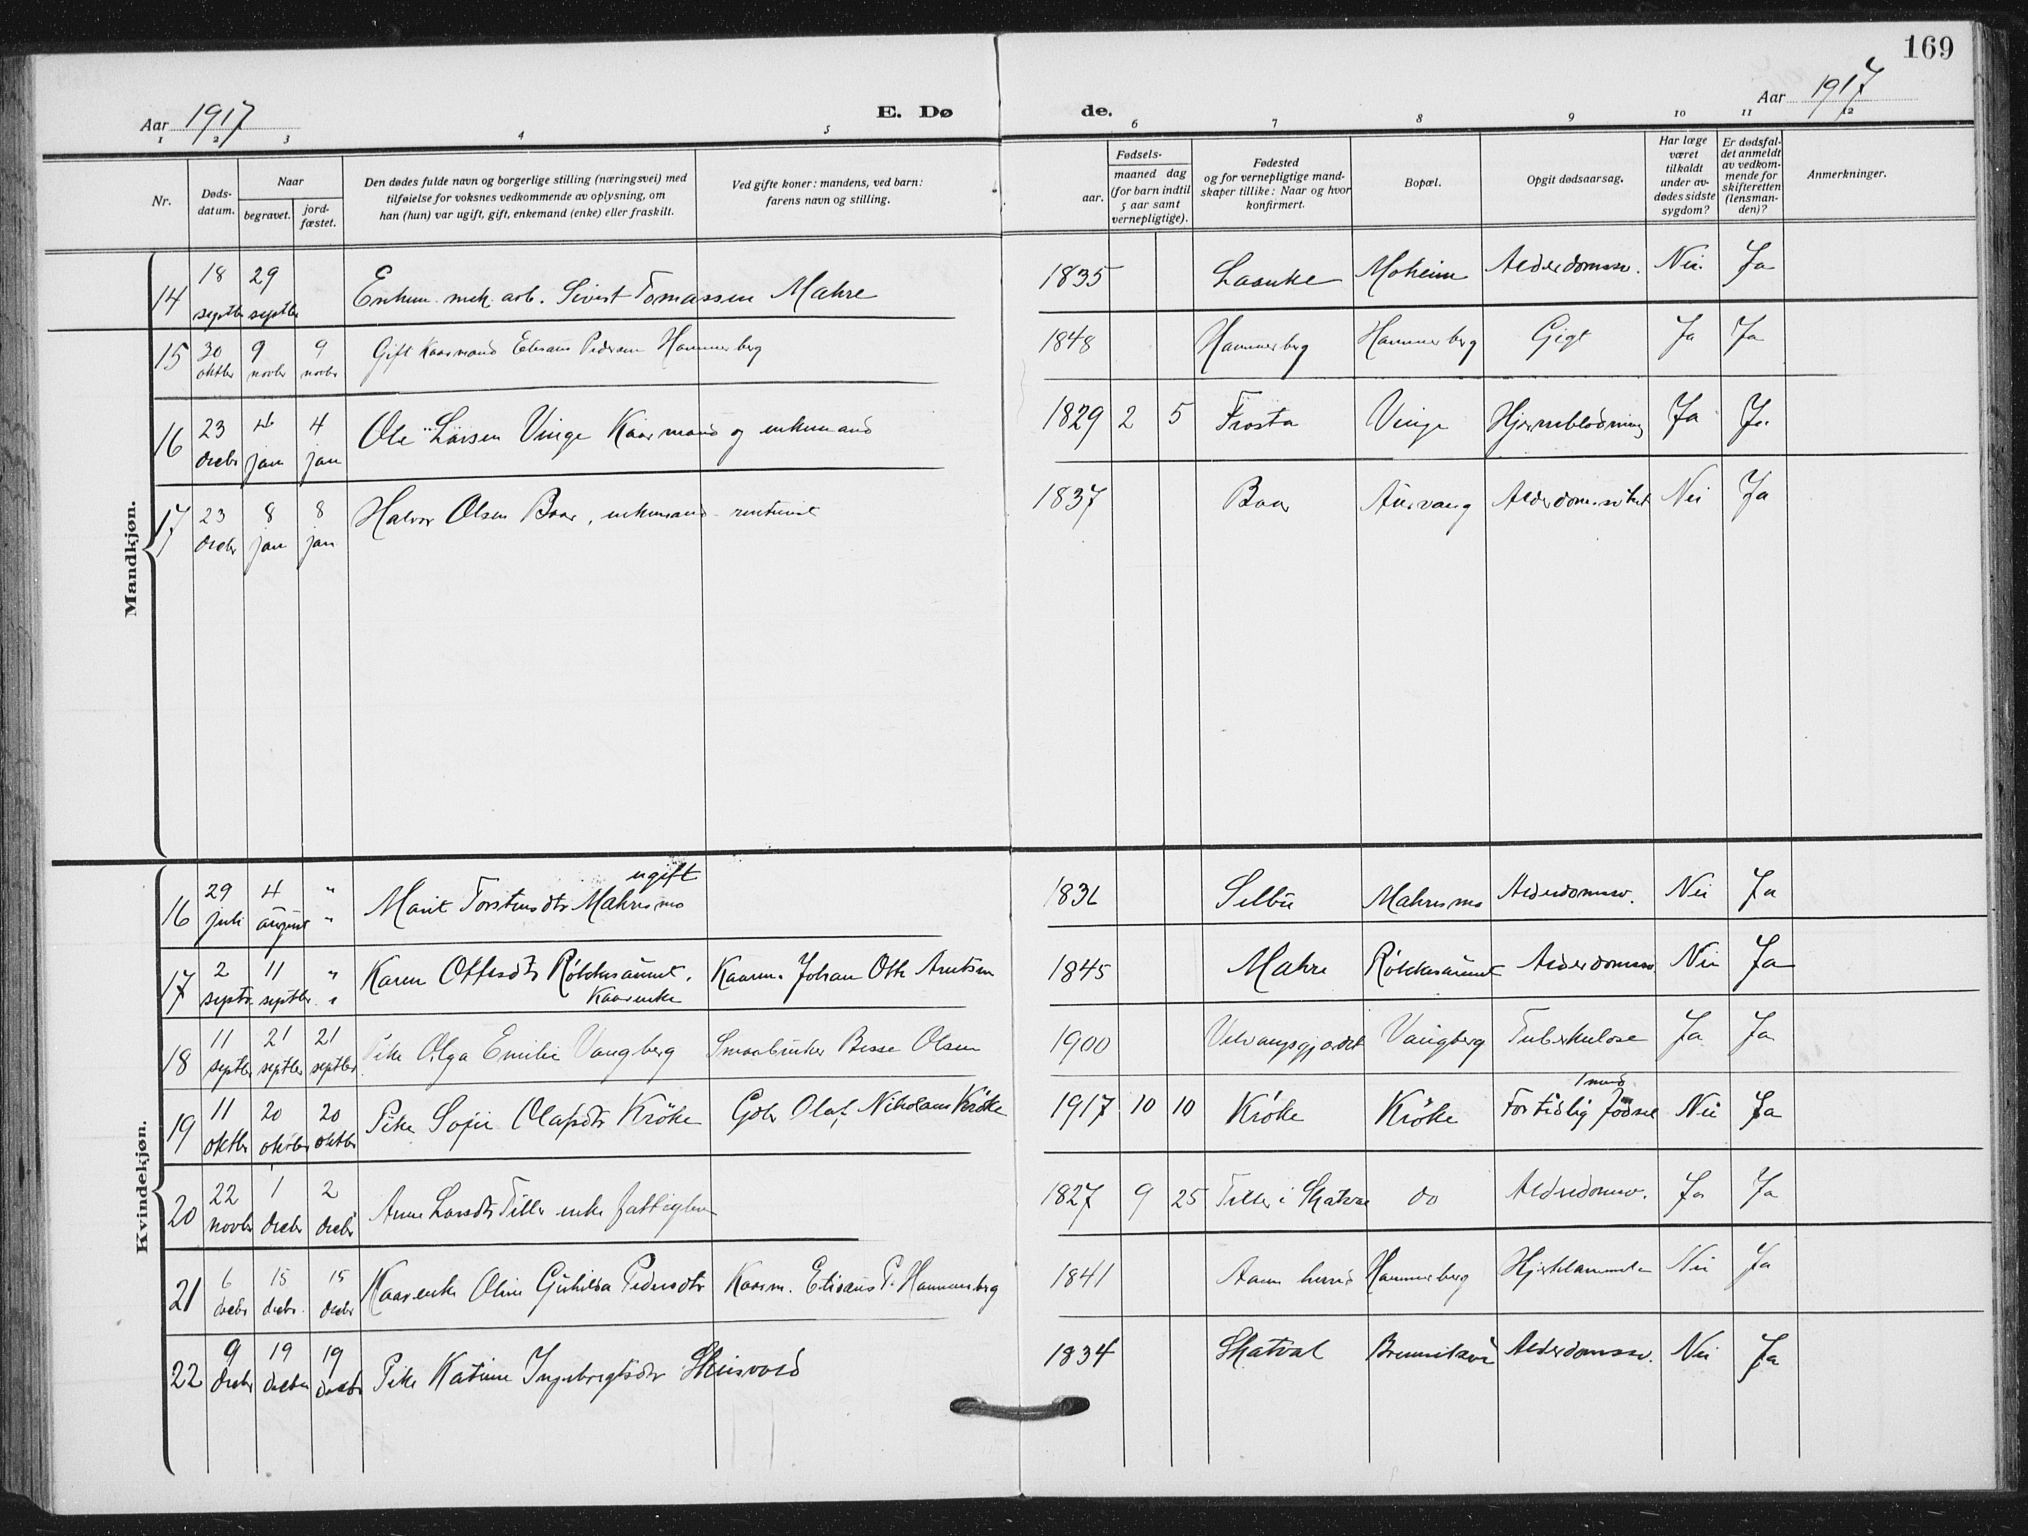 169
Aar 1917
E. Dø de.
Aar 1917
1 2 3 4 5 6 7 8 9 10 11 12
Nr.
Døds-
datum.
Naar
begravet.
jord-
fæstet.
Den dødes fulde navn og borgerlige stilling (næringsvei) med
tilføielse for voksnes vedkommende av oplysning, om
han (hun) var ugift, gift, enkemand (enke) eller fraskilt.
Ved gifte koner: mandens, ved barn:
farens navn og stilling.
Fødsels-
aar.
maaned dag
(for barn indtil
5 aar samt
vernepligtige).
Fødested
og for vernepligtige mand-
skaper tillike: Naar og hvor
konfirmert.
Bopæl.
Opgit dødsaarsag.
Har læge
været
tilkaldt
under av-
dødes sidste
sygdom?
Er dødsfal-
det anmeldt
av vedkom-
mende for
skifteretten
(lensman-
den)?
Anmerkninger.
Mandkjøn.
14 18 septbr 29 septbr Enkem. mek. arb. Sivert Tomassen Mahre 1835 Laanke Moheim Alderdomssv. Nei. Ja
15 30 oktbr 9 novbr 9 novbr Gift Kaarmand Elisæus Pedersen Hammerberg 1848 Hammerberg Hammerberg Gigt Ja Ja
16 23 decbr 4 jan 4 jan Ole Larsen Vinge Kaarmand og enkemand 1829 2 5 Frosta Vinge Hjerneblødning Ja Ja
17 23 decbr 8 jan 8 jan Halvor Olsen Baar, enkemand 1837 Baar Aurvang Alderdomssvakhet Nei Ja
Kvindekjøn.
16 29 juli 4 august " " Marit Torstensdtr Mahresmo ugift 1836 Selbu Mahresmo Alderdomssv. Nei Ja
17 2 septbr. 11 septbr. " Karen Offesdtr Røkkesaunet. Kaarenke Kaarm. Johan Otto Arntsen 1845 Mahre Røkkesaunet Alderdomssv Nei Ja
18 11 septbr 21 septbr 21 septbr Pike Olga Emilie Vangberg Smaabruker Besse Olsen 1900 Velvangsgjærdet Vangberg Tuberkulose Ja Ja
19 11 oktbr 20 oktober 20 oktbr Pike Sofie Olafsdtr Krøke Gbr Olaf Nikolaus Krøke 1917 10 10 Krøke Krøke For tidlig fødsel 1 mnd. Nei Ja
20 22 novbr 1 decbr 2 decbr Anne Larsdtr Tiller enke fattiglem 1827 9 25 Tiller i Skatval do Alderdomssv. Ja Ja
21 6 decbr 15 decbr. 15 decbr Kaarenke Oline Gunhilda Pedersdtr Kaarm. Elisæus P. Hammerberg 1841 Hammerberg Nei Ja
22 9 decbr 19 decbr 19 decbr Pike Katrine Ingebrigtsdtr 1834 Skatval Alderdomssv. Nei Ja